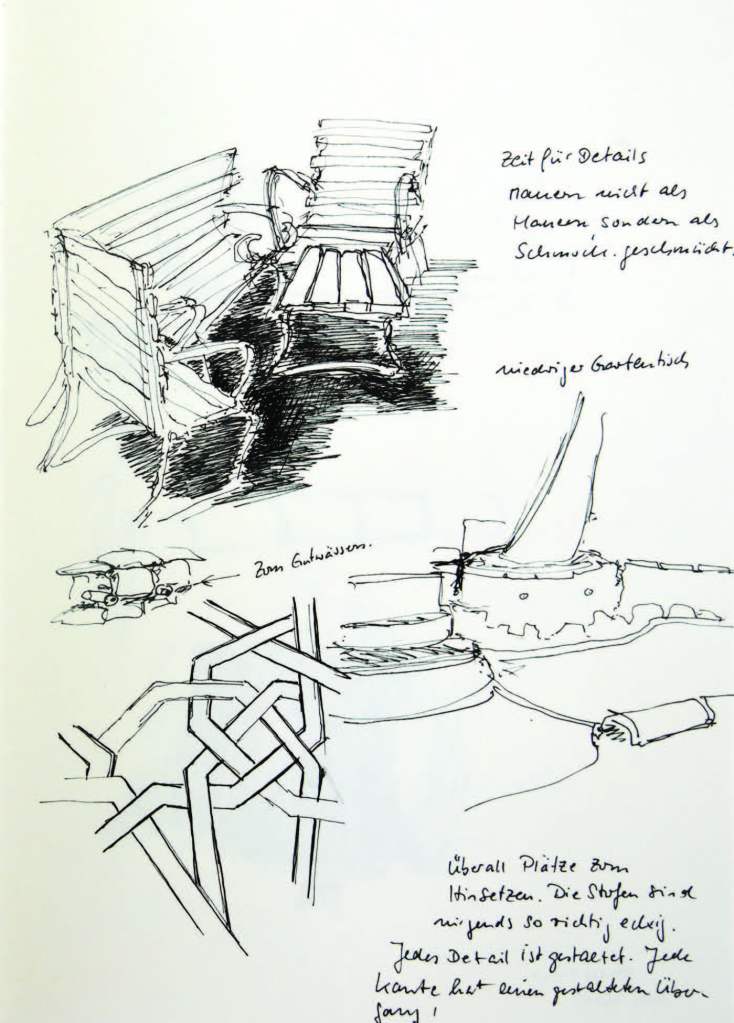 Zeit für Details
Mauern nicht als
Mauern sondern als
Schmuck. geschmückt.
niedriger Gartentisch
Zum Entwässern.
Überall Plätze zum
Hinsetzen. Die Stufen sind
nirgends so richtig eckig.
Jedes Detail ist gestaltet. Jede
Kante hat einen gestalteten Über-
gang!